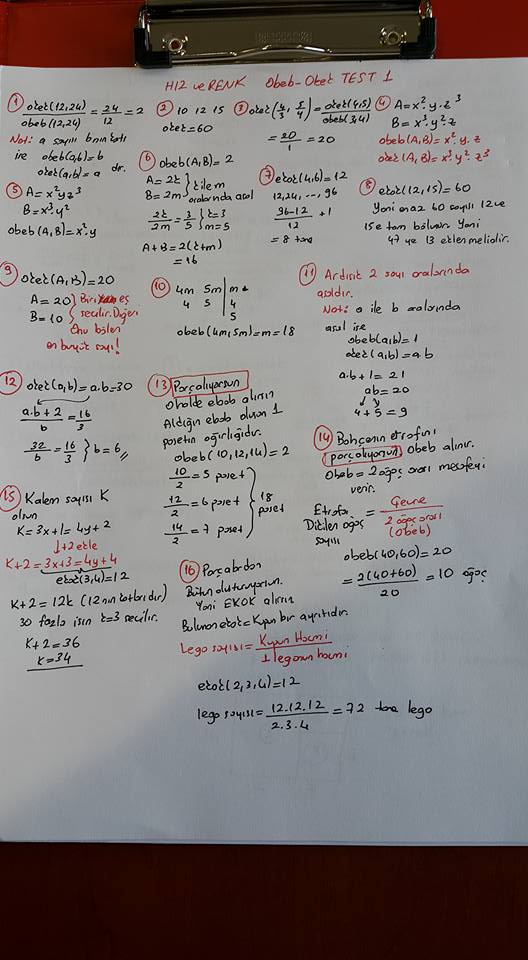 HIZ ve RENK Obeb-Okek TEST 1
1 okek(12,24) / obeb(12,24) = 24/12 = 2
Not: a sayısı b nin katı
ise obeb(a,b)=b
okek(a,b)=a dır.
2 10 12 15
okek=60
3 okek(4/3, 5/4) = okek(4,5) / obeb(3,4)
= 20/1 = 20
4 A=x².y.z³
B=x³.y².z
obeb(A,B)=x².y.z
okek(A,B)=x³.y².z³
5 A=x²yz³
B=x³.y²
obeb(A,B)=x².y
6 obeb(A,B)=2
A=2k } k ile m
B=2m } aralarında asal
2k/2m = 3/5 } k=3
m=5
A+B=2(k+m)
=16
7 ekok(4,6)=12
12,24, ..., 96
96-12 / 12 + 1
= 8 tane
8 ekok(12,15)=60
Yani en az 60 sayısı 12 ve
15 e tam bölünür. Yani
47 ye 13 eklenmelidir.
9 okek(A,B)=20
A=20 } Biri eş
B=10 } seçilir. Diğeri
Onu bölen
en büyük sayı!
10 4m 5m m
4 5 4
5
obeb(4m,5m)=m=18
11 Ardışık 2 sayı aralarında
asaldır.
Not: a ile b aralarında
asal ise
obeb(a,b)=1
okek(a,b)=a.b
a.b+1=21
ab=20
4+5=9
12 okek(a,b)=a.b=30
a.b+2 / b = 16/3
32/b = 16/3 } b=6
13 Parçalıyorsun
O halde ebob alırsın
Aldığın ebob olursun 1
poşetin ağırlığıdır.
obeb(10,12,14)=2
10/2 = 5 poşet
12/2 = 6 poşet } 18 poşet
14/2 = 7 poşet
14 Bahçenin etrafını
parçalıyorsun Obeb alınır.
Obeb = 2 ağaç arası mesafeyi
verir.
Etrafa Dikilen ağaç sayısı = Çevre / 2 ağaç arası (Obeb)
obeb(40,60)=20
= 2(40+60) / 20 = 10 ağaç
15 Kalem sayısı K
olsun
K=3x+1=4y+2
↓+2 ekle
K+2=3x+3=4y+4
ekok(3,4)=12
K+2=12k (12 nin katlarıdır)
30 fazla için k=3 seçilir.
K+2=36
K=34
16 Parçalardan
Bütün oluturuyorsun.
Yani EKOK alırsın
Bulunan ekok=Küpün bir ayrıtıdır.
Lego sayısı = Küpün Hacmi / 1 legonun hacmi
ekok(2,3,4)=12
lego sayısı = 12.12.12 / 2.3.4 = 72 tane lego